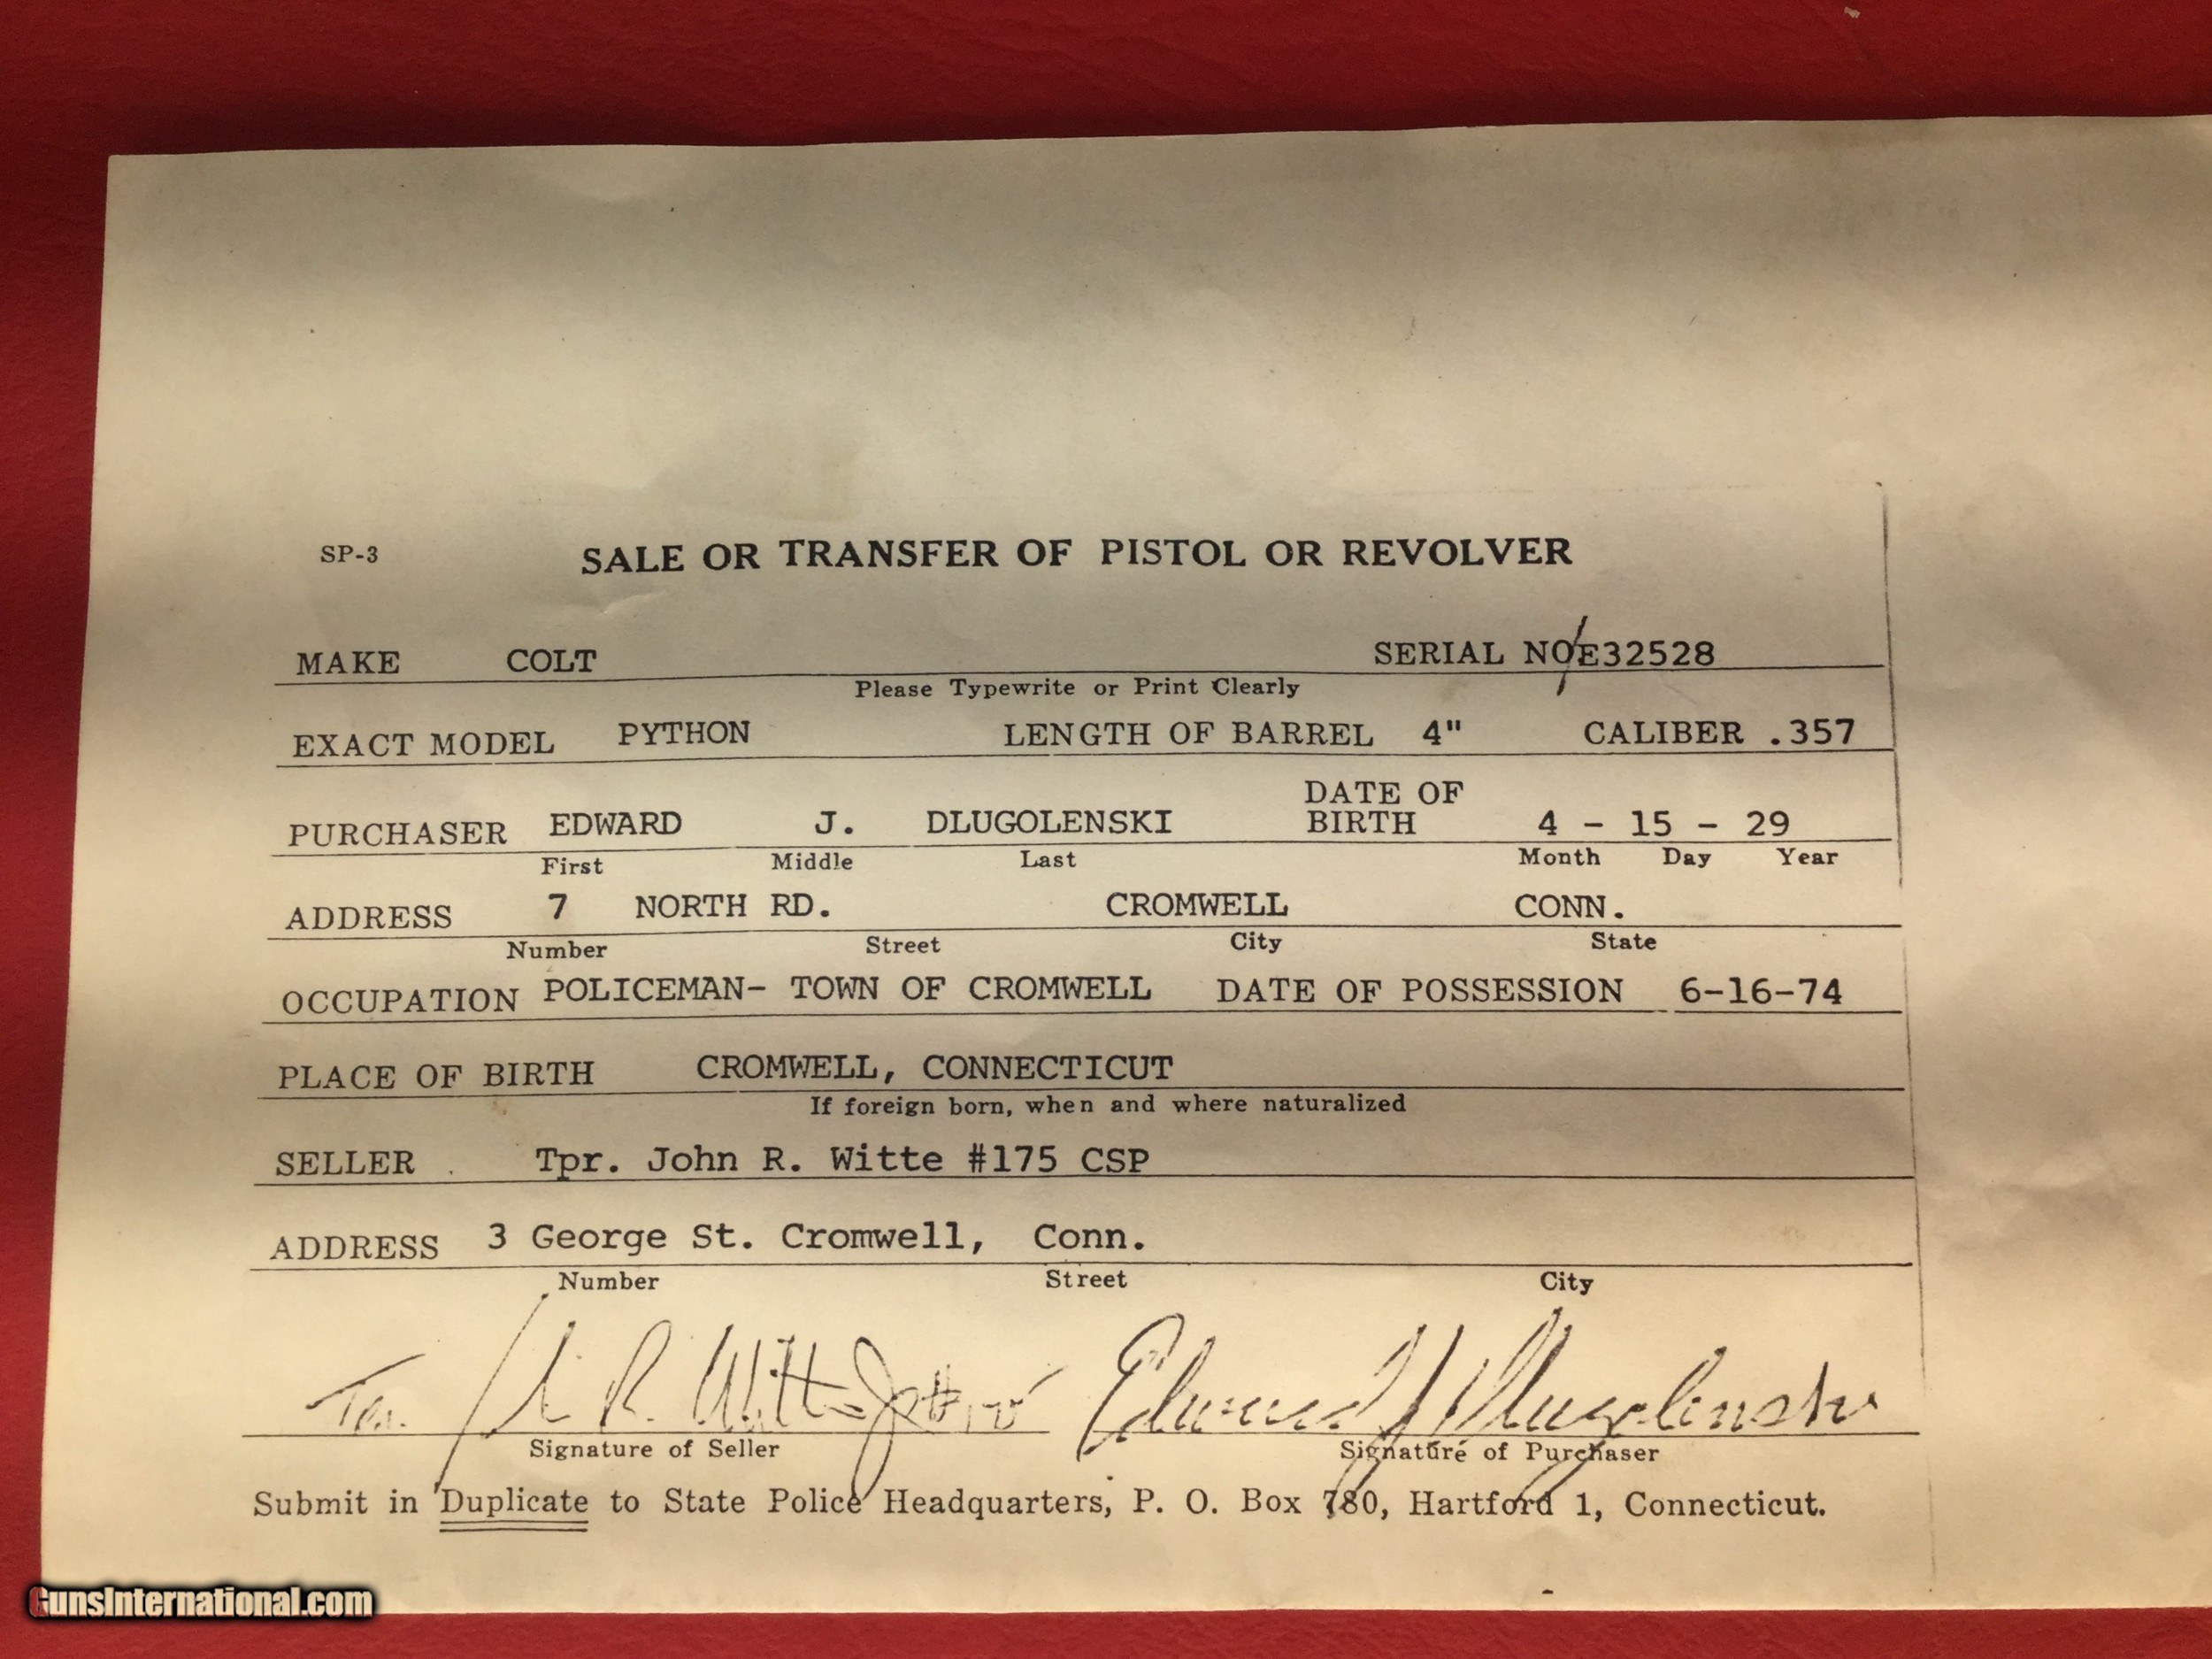 SP-3 SALE OR TRANSFER OF PISTOL OR REVOLVER
MAKE COLT SERIAL NO E32528
Please Typewrite or Print Clearly
EXACT MODEL PYTHON LENGTH OF BARREL 4" CALIBER .357
PURCHASER EDWARD J. DLUGOLENSKI DATE OF BIRTH 4 - 15 - 29
First Middle Last Month Day Year
ADDRESS 7 NORTH RD. CROMWELL CONN.
Number Street City State
OCCUPATION POLICEMAN- TOWN OF CROMWELL DATE OF POSSESSION 6-16-74
PLACE OF BIRTH CROMWELL, CONNECTICUT
If foreign born, when and where naturalized
SELLER Tpr. John R. Witte #175 CSP
ADDRESS 3 George St. Cromwell, Conn.
Number Street City
R. Witte Edward J Dlugolenski
Signature of Seller Signature of Purchaser
Submit in Duplicate to State Police Headquarters, P. O. Box 780, Hartford 1, Connecticut.
GunsInternational.com